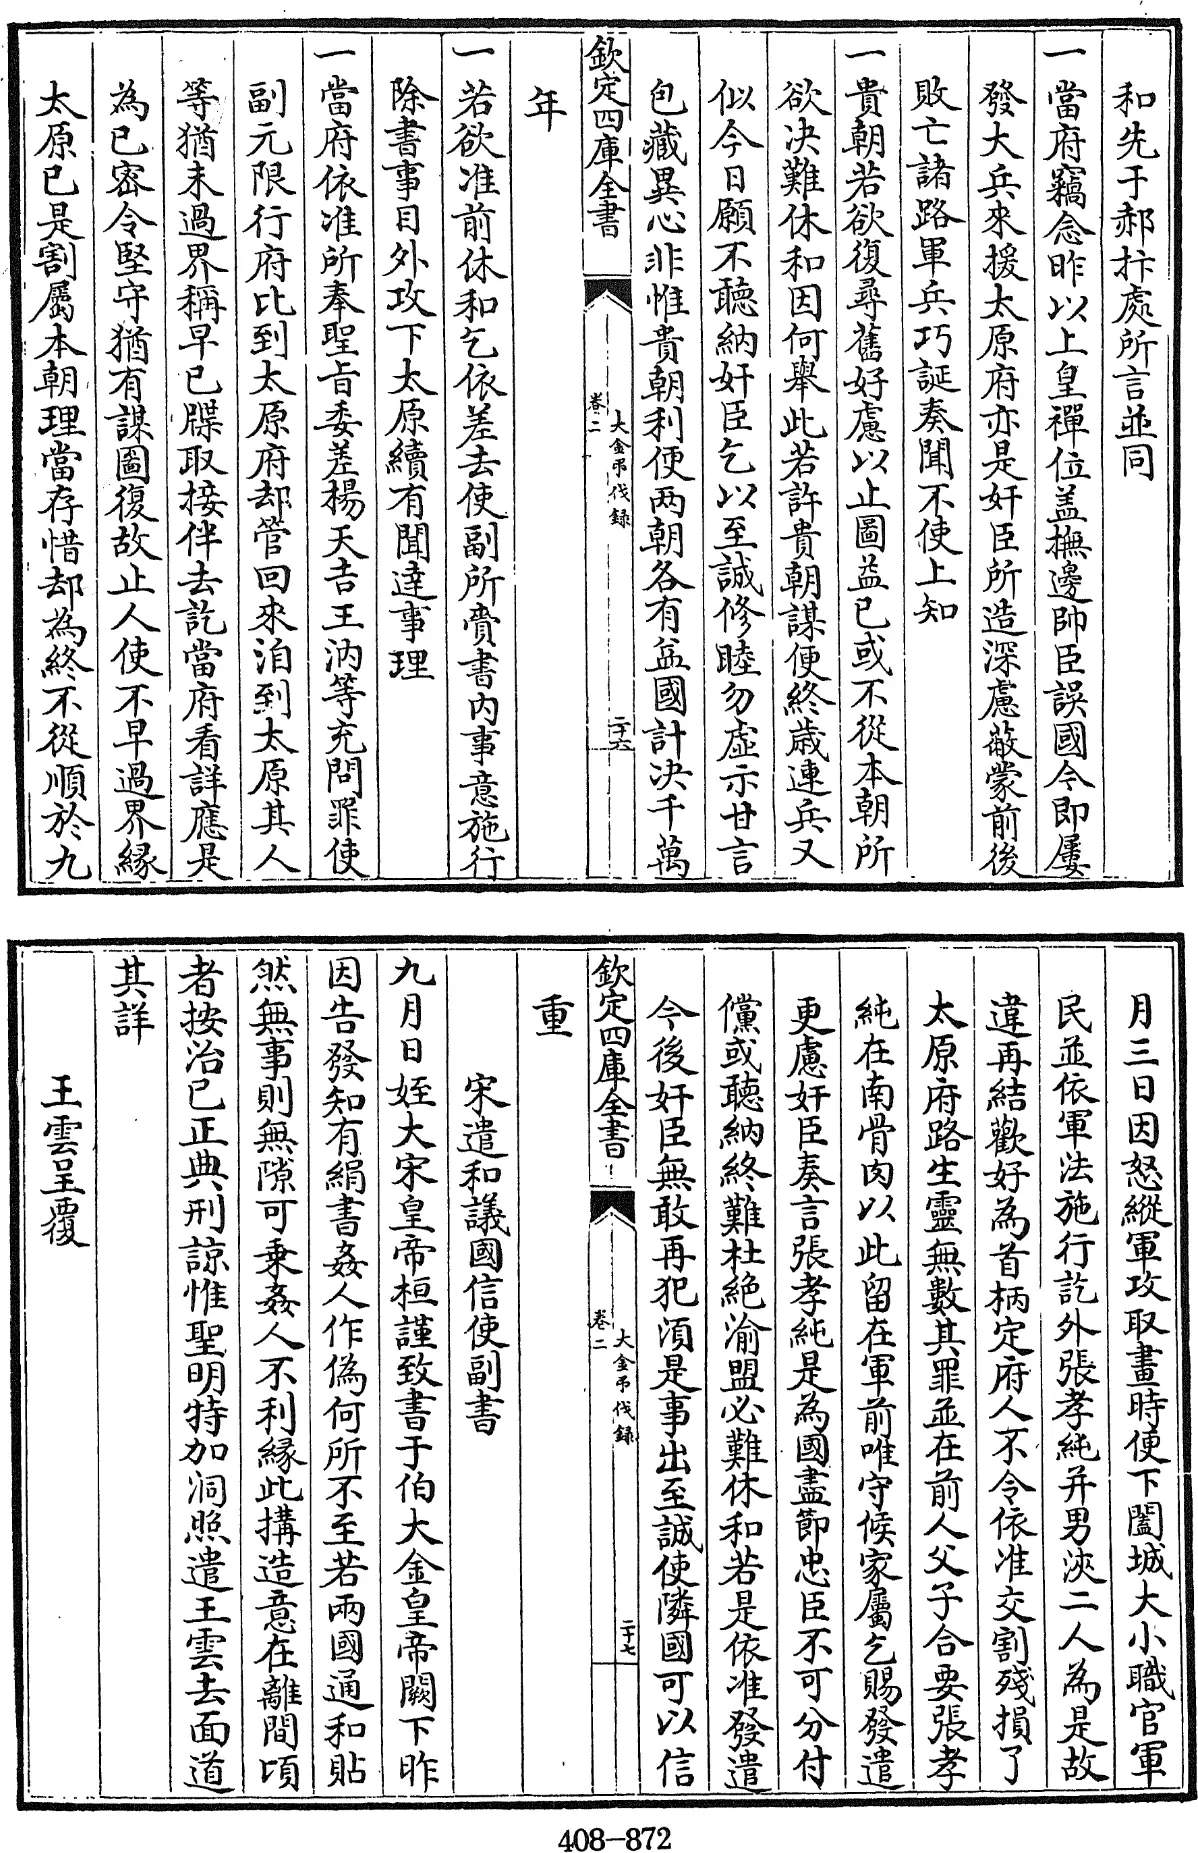 和先于郝抃處所言並同
一當府竊念昨以上皇禪位盖撫邊帥臣誤國今即屢
發大兵來援太原府亦是奸臣所造深慮蔽蒙前後
敗亡諸路軍兵巧誕奏聞不使上知
一貴朝若欲復尋舊好慮以止圖益已或不從本朝所
欲決難休和因何舉此若許貴朝謀便終歳連兵又
似今日願不聽納奸臣乞以至誠修睦勿虛示甘言
包藏異心非惟貴朝利便兩朝各有益國計決千萬
欽定四庫全書
大金弔伐録
卷二
二十六
年
一若欲准前休和乞依差去使副所賫書内事意施行
除書事目外攻下太原續有聞達事理
一當府依准所奉聖旨委差楊天吉王汭等充問罪使
副元限行府比到太原府却管回來洎到太原其人
等猶未過界稱早已牒取接伴去訖當府看詳應是
為已密令堅守猶有謀圖復故止人使不早過界縁
太原已是割屬本朝理當存惜却為終不從順於九
月三日因怒縱軍攻取畫時便下闔城大小職官軍
民並依軍法施行訖外張孝純并男浹二人為是故
違再結歡好為首柄定府人不令依准交割殘損了
太原府路生靈無數其罪並在前人父子合要張孝
純在南骨肉以此留在軍前唯守候家屬乞賜發遣
更慮奸臣奏言張孝純是為國盡節忠臣不可分付
儻或聽納終難杜絶渝盟必難休和若是依准發遣
今後奸臣無敢再犯湏是事出至誠使隣國可以信
欽定四庫全書
大金弔伐録
卷二
二十七
重
宋遣和議國信使副書
九月日姪大宋皇帝桓謹致書于伯大金皇帝闕下昨
因告發知有絹書姦人作偽何所不至若兩國通和貼
然無事則無隙可乗姦人不利縁此搆造意在離間頃
者按治已正典刑諒惟聖明特加洞照遣王雲去面道
其詳
王雲呈覆
408-872